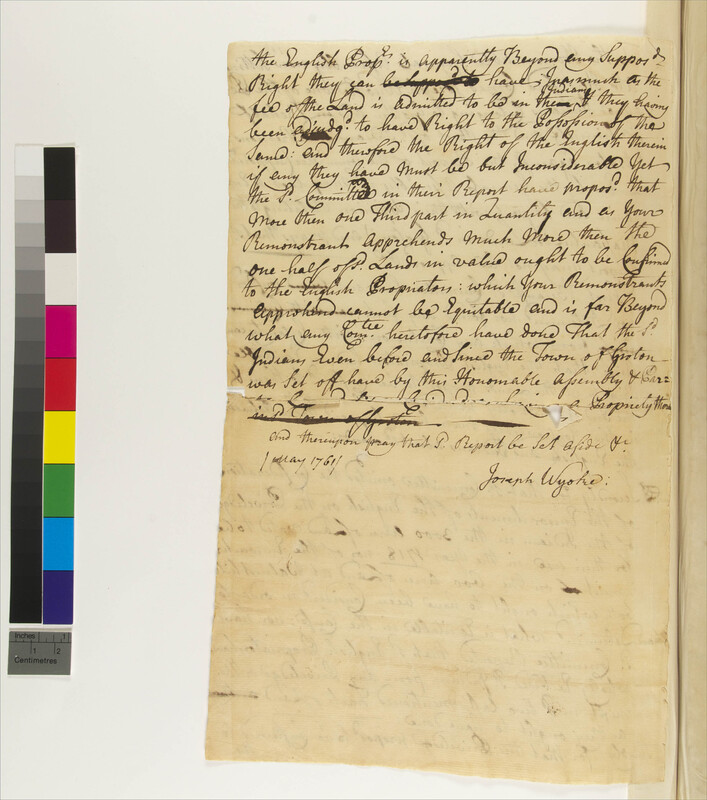 the English Prop.rs is apparently Beyond any Suppos.d
Right they can be supposd to have Inasmuch as the
fee of the Land is admitted to be in them Indians they having
been adjudg.d to have Right to the Possession of the
Same: and therefore the Right of the English therein
if any they have must be but Inconsiderable Yet
the s.d Committee in their Report have propos.d that
more then one Third part in Quantity and as Your
Remonstrant apprehends much more then the
one half of s.d Lands in value ought to be Confirmd
to the English Propriators: which Your Remonstrants
apprehend cannot be Equitable and is far Beyond
what any Com.tee heretofore have done That the s.d
Indians Even before and Since the Town of Groton
was Set off have by this Honourable assembly &
a Propriety
in s.d Town of Groton
and thereupon pray that s.d Report be Set aside &c
/May 1761/
Joseph Wyoke:
Inches
1 2
Centimetres